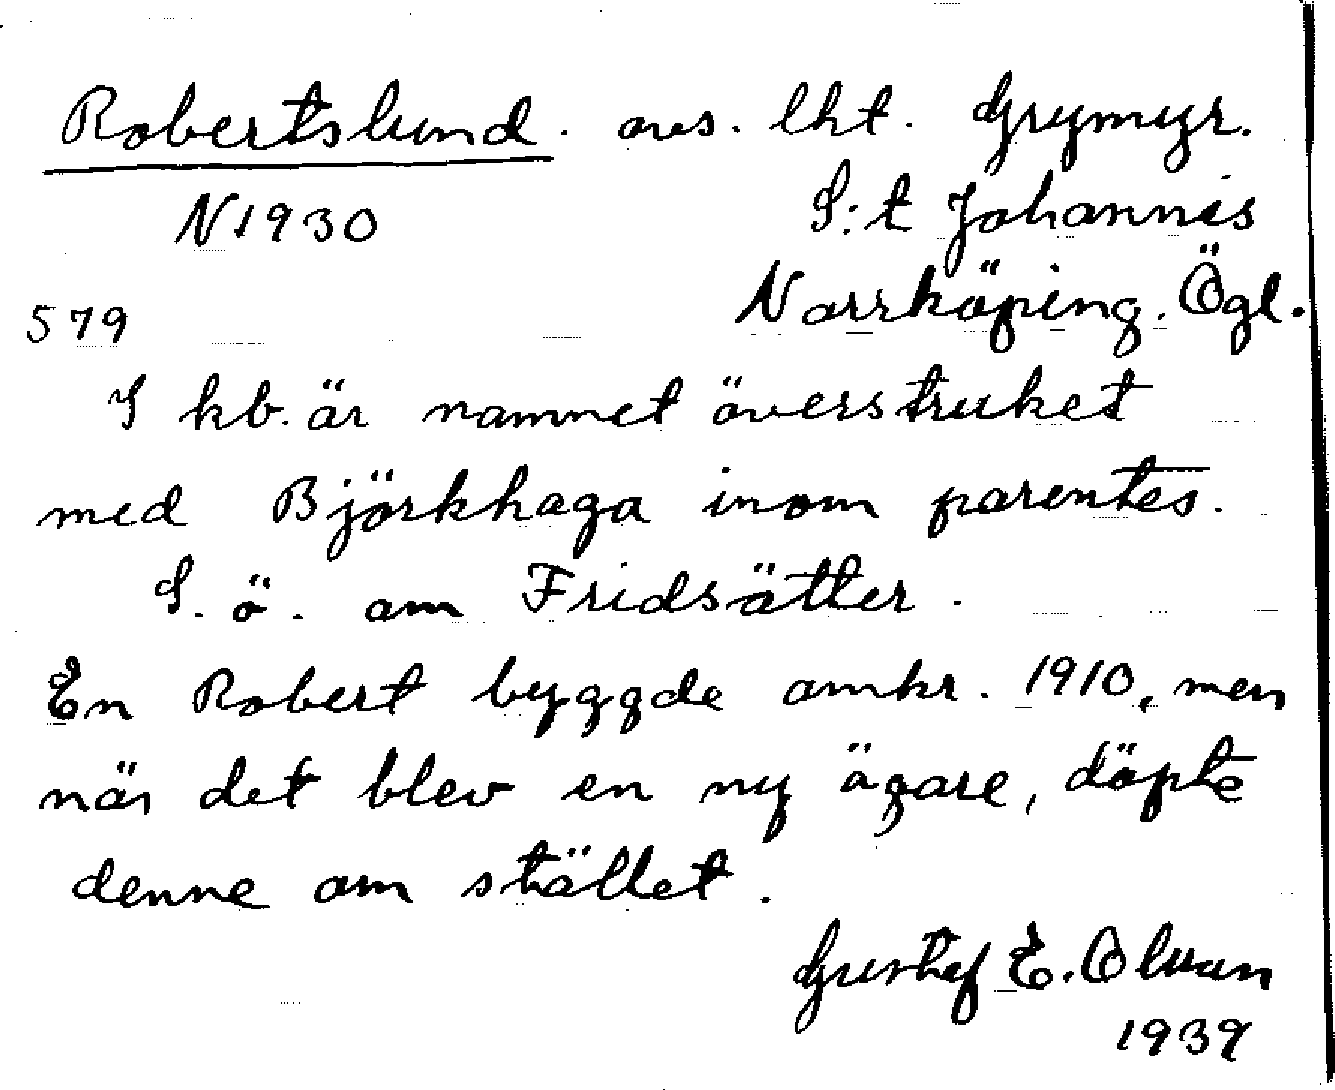 Robertslund. avs. lht. Grymyr.
N1930 S:t Johannis
579 Norrköping. Ögl.
I kb. är namnet överstruket
med Björkhaga inom parentes.
S. ö. om Fridsätter.
En Robert byggde omkr. 1910, men
när det blev en ny ägare, döpte
denne om stället.
Gusthef E. Olsson
1939